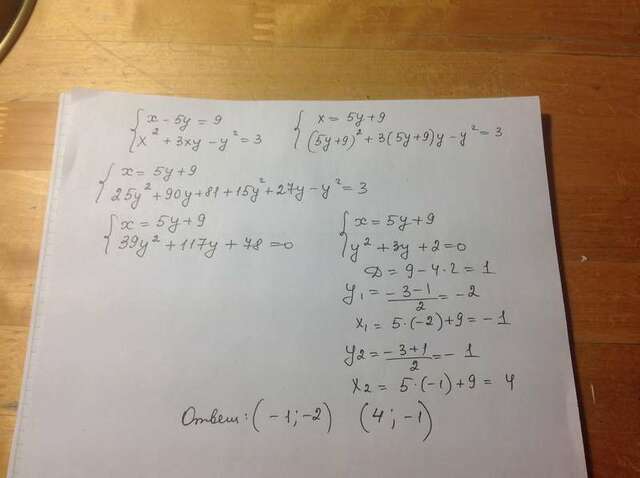 { x - 5y = 9
x² + 3xy - y² = 3
{ x = 5y + 9
(5y+9)² + 3(5y+9)y - y² = 3
{ x = 5y + 9
25y² + 90y + 81 + 15y² + 27y - y² = 3
{ x = 5y + 9
39y² + 117y + 78 = 0
{ x = 5y + 9
y² + 3y + 2 = 0
D = 9 - 4·2 = 1
y₁ = (-3-1)/2 = -2
x₁ = 5·(-2)+9 = -1
y₂ = (-3+1)/2 = -1
x₂ = 5·(-1)+9 = 4
Ответ: (-1; -2) (4; -1)